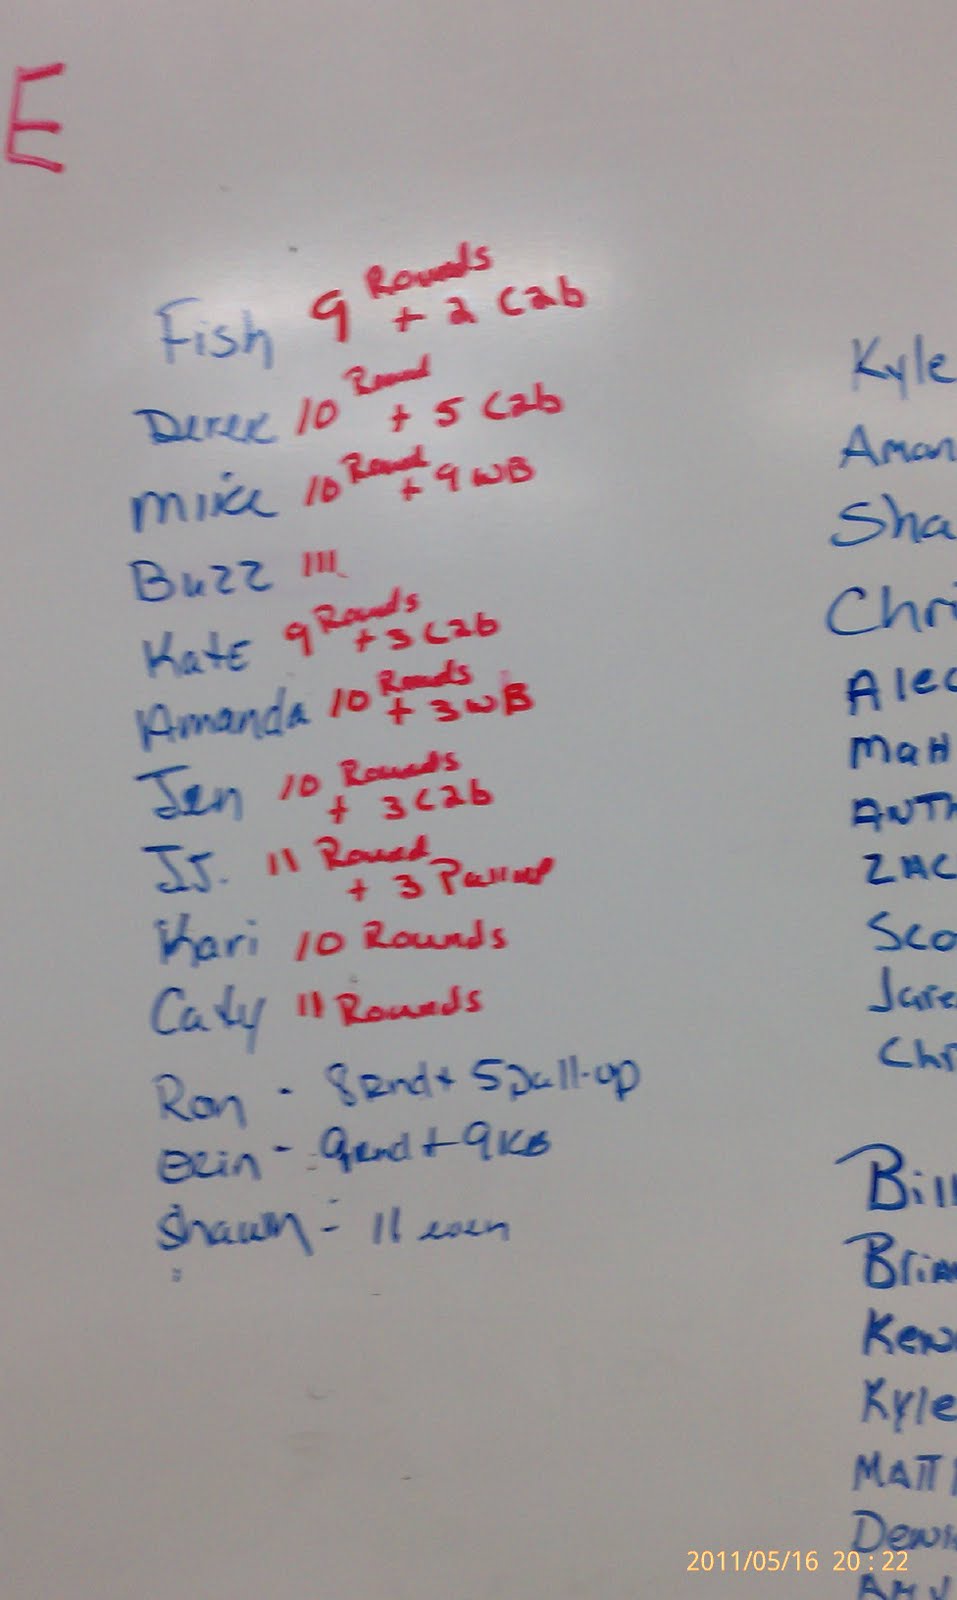 E
Fish 9 Rounds + 2 C2b
Derek 10 Round + 5 C2b
Mike 10 Round + 9 WB
Buzz 111
Kate 9 Rounds + 3 C2b
Amanda 10 Rounds + 3 WB
Jen 10 Rounds + 3 C2b
JJ. 11 Round + 3 Pullup
Kari 10 Rounds
Caty 11 Rounds
Ron - 8 Rnd + 5 pull-up
Erin - 9 rnd + 9 KB
Shawn - 11 even
Kyle
Aman
Sha
Chri
Alec
Matt
ANTH
ZAC
Sco
Jare
Chr
Bill
Brian
Ken
Kyle
MATT
Deni
Amy
2011/05/16 20:22